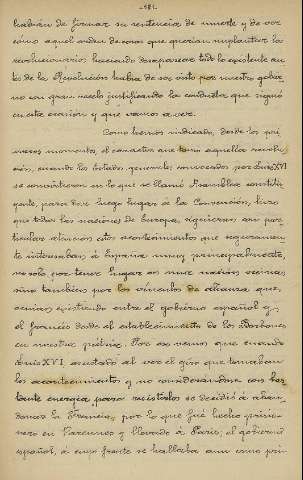 -181-
habían de firmar su sentencia de muerte y de ver
cómo aquel orden de cosas que querían implantar los
revolucionarios haciendo desaparecer todo lo existente an
tes de la Revolución habia de ser visto por nuestro gobier
no con gran recelo justificando la conducta que siguió
en esta ocasión y que vamos a ver.
Como hemos indicado, desde los pri
meros momentos, el caracter que tomo aquella revolu
ción, cuando los Estados generales, convocados por Luis XVI
se convirtieron en lo que se llamó Asamblea constitu
yente, para dar luego lugar a la Convención, hizo
que todas las naciones de Europa, siguieran con par
ticular atencion estos acontecimientos que seguramen
te interesaban á España muy principalmente,
no solo por tener lugar en una nación vecina,
sino tambien por los vinculos de alianza que,
venian existiendo entre el gobierno español y
el francés desde el establecimiento de los Borbones
en nuestra patria. Por eso vemos que cuando
Luis XVI asustado al ver el giro que tomaban
los acontecimientos y no considerandose con bas
tante energia para resistirlos se decidió a aban
donar la Francia, por lo que fué hecho prisio
nero en Varennes y llevado á Paris; el gobierno
español, á cuyo frente se hallaba aun como pri